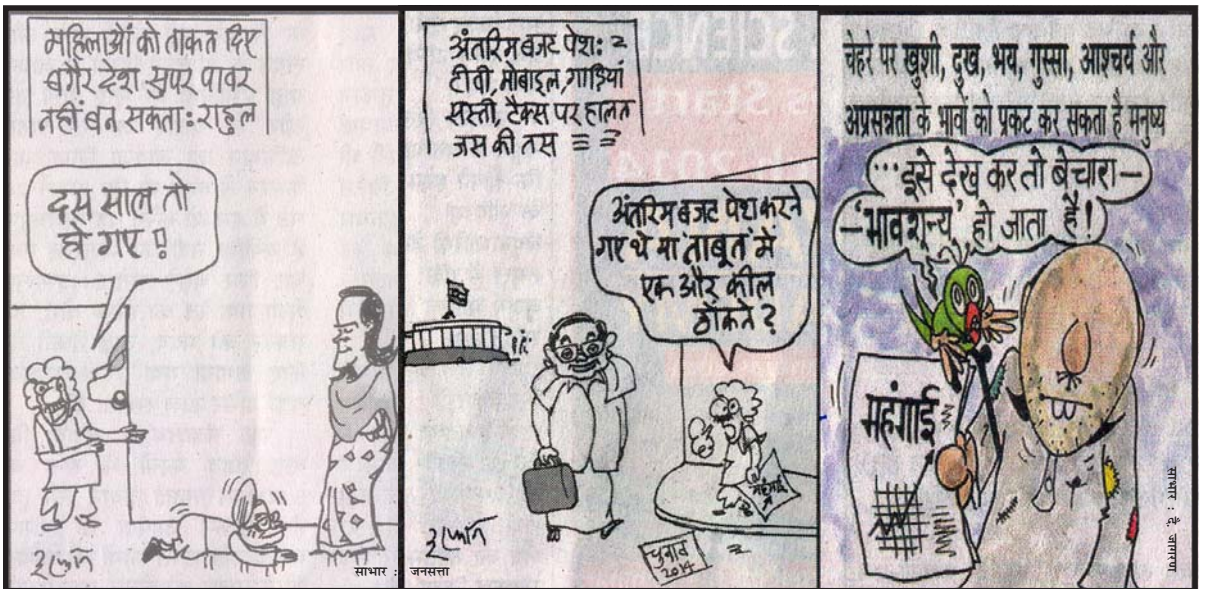 महिलाओं को ताकत दिए
बगैर देश सुपर पावर
नहीं बन सकता: राहुल
दस साल तो
हो गए!
साभार : जनसत्ता
अंतरिम बजट पेश:
टीवी, मोबाइल, गाड़ियां
सस्ती, टैक्स पर हालत
जस की तस
अंतरिम बजट पेश करने
गए थे या ताबूत में
एक और कील
ठोंकने?
महंगाई
चुनाव
2014
चेहरे पर खुशी, दुख, भय, गुस्सा, आश्चर्य और
अप्रसन्नता के भावों को प्रकट कर सकता है मनुष्य
...इसे देख कर तो बेचारा—
—'भावशून्य' हो जाता है!
महंगाई
साभार : दै. जागरण